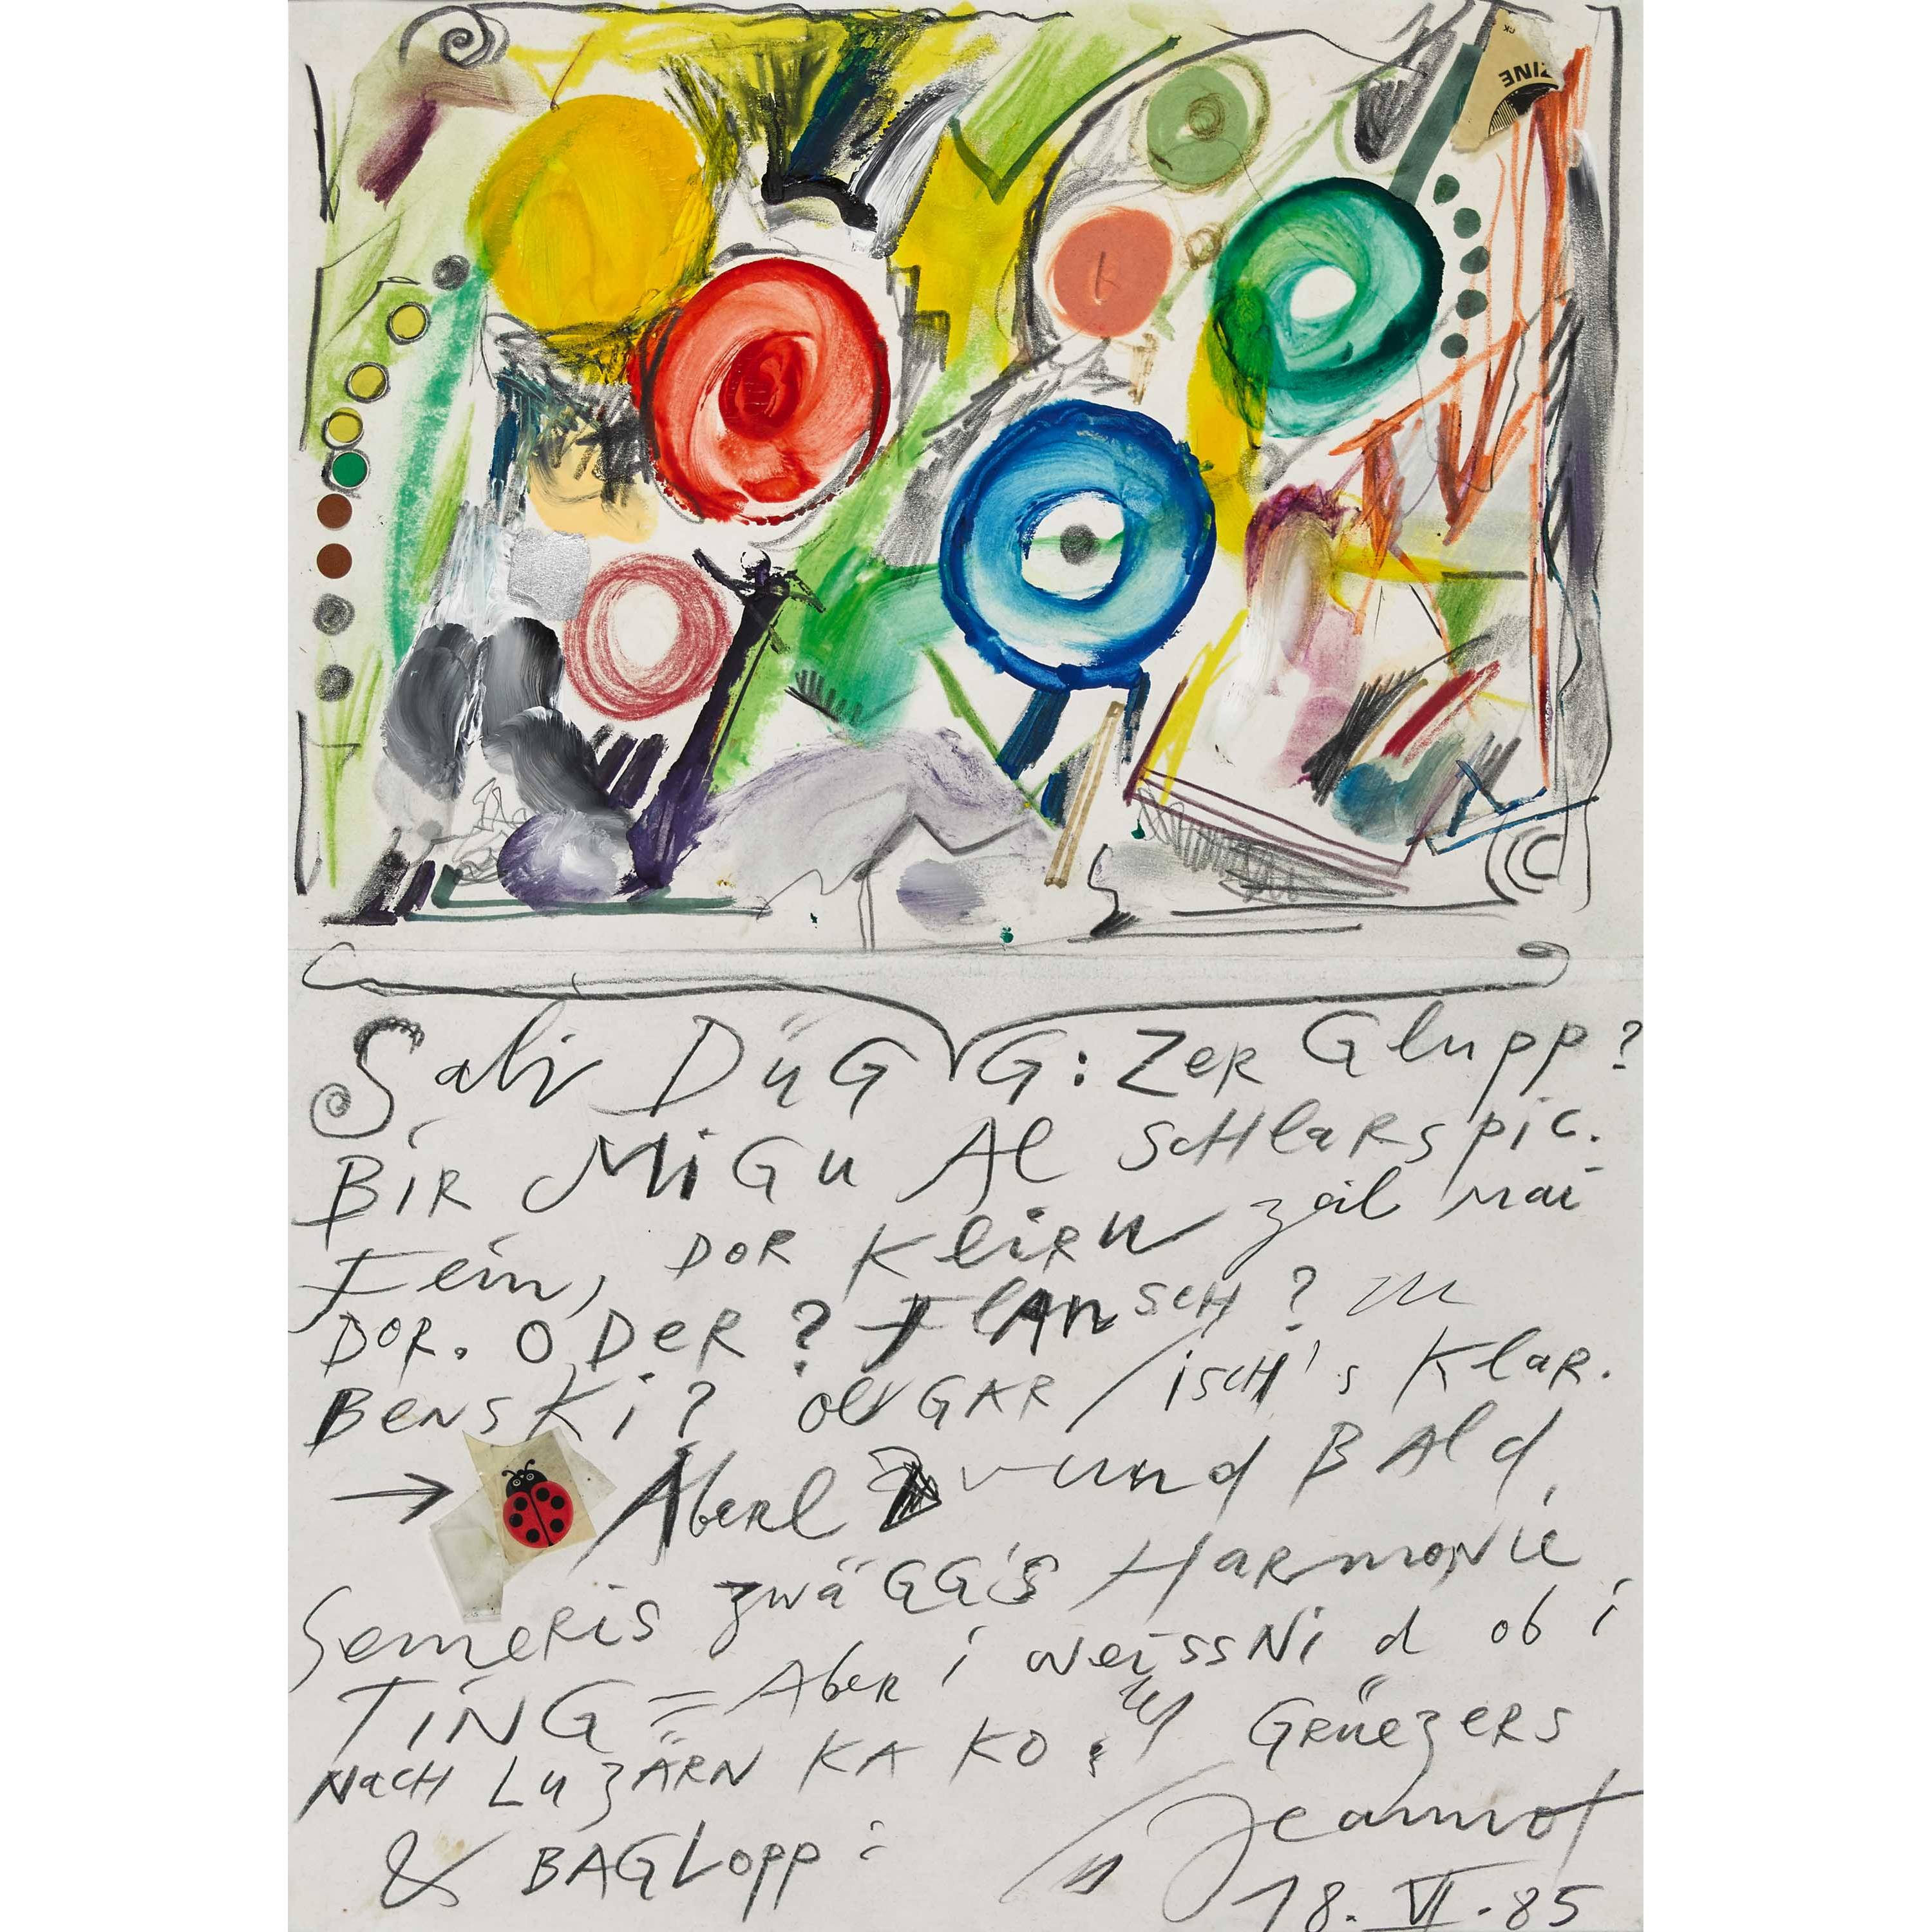 ZINE
CK
Sali DüGG: Zer Glupp?
BiR MiGu Al SCHlaRspic.
Fein, DOR KleiRN zeil mai
DOR. ODeR? FlANSCH?
BeNSKi? olVGAR / iSCH's KlaR.
→ AbeRl und BAld,
SemeRis zwäGG's HaRmoNie
TiNG = AbeR i weissNid ob i
NaCH LuzÄRN KA KO: GRüezeRS
& BAGLopp: Jeannot
18. VI. 85